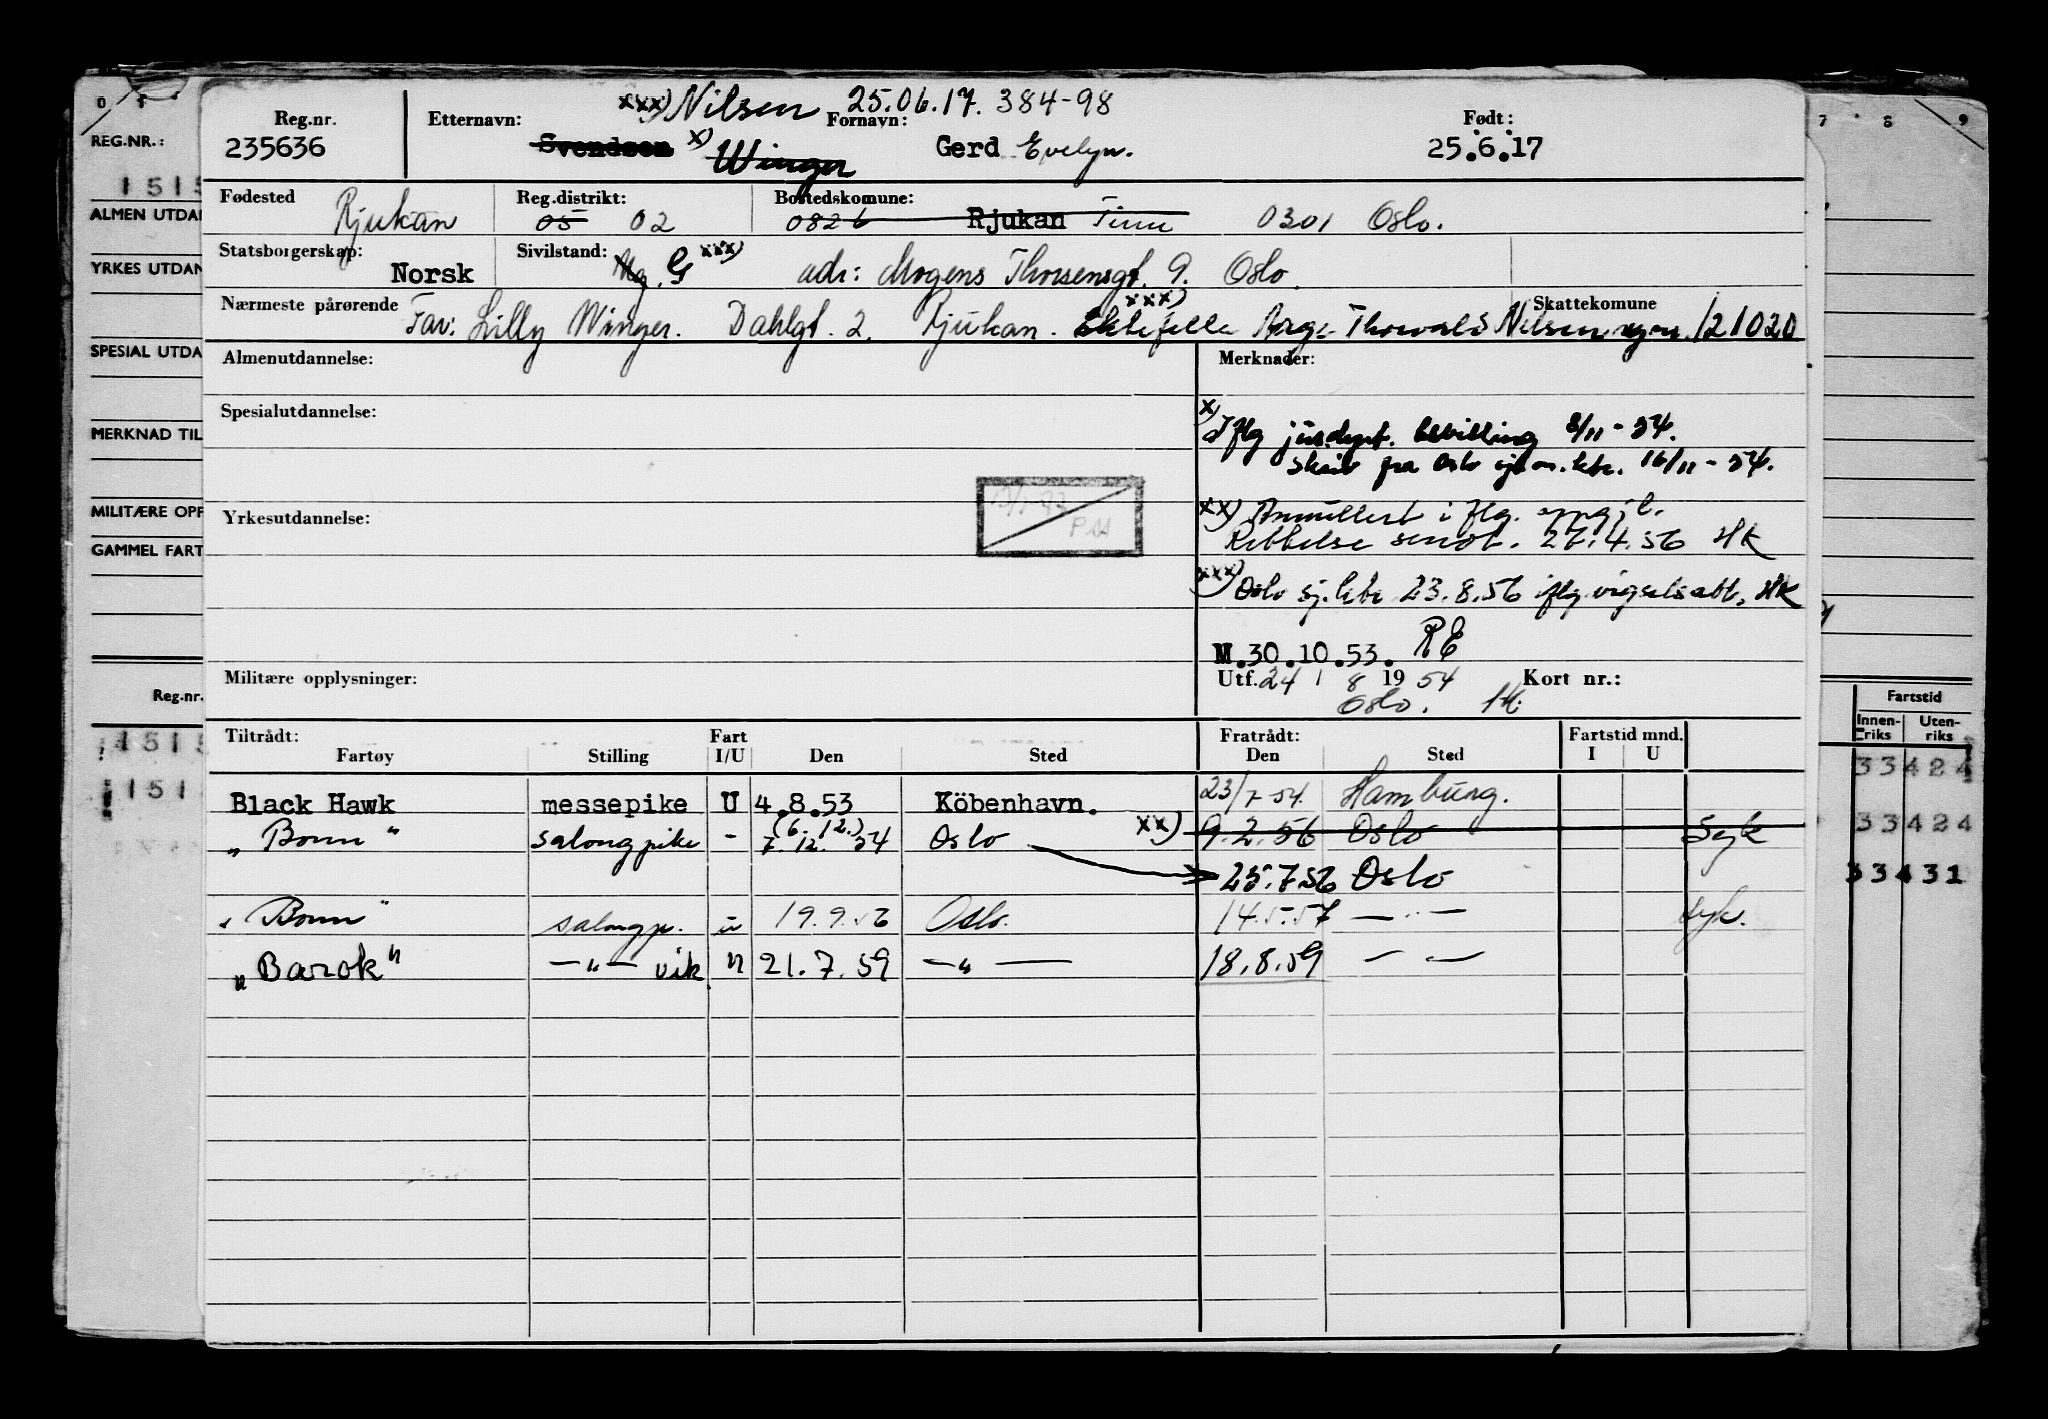 xxx) Nilsen 25.06.17. 384-98
Reg.nr. Etternavn: Fornavn: Født:
235636 Svendsen x) Winger Gerd Evelyn. 25.6.17
Fødested Rjukan Reg.distrikt: 05 02 Bostedskomune: 0826 Rjukan Tinn 0301 Oslo.
Statsborgerskap: Norsk Sivilstand: Ug. G xxx) adr: Mogens Thorsensgt. 9. Oslo.
Nærmeste pårørende Far: Lilly Winger. Dahlgt. 2. Rjukan. xxx) Ektefelle Aage Thorvald Nilsen Skattekomune 121020
Almenutdannelse: Merknader:
Spesialutdannelse:
x) Iflg jus.dept. bevilling 8/11-54.
skriv fra Oslo sjøm.ktr. 16/11-54.
Yrkesutdannelse:
PM
xx) Annullert i flg. oppgj.l.
Rettelse sendt. 26.4.56 HK
xxx) Oslo sj.ktr 23.8.56 iflg vigselsatt. HK
M.30.10.53. RE
Militære opplysninger: Utf. 24 / 8 1954 Kort nr.:
Oslo. HK
Tiltrådt: Fart Fratrådt: Fartstid mnd.
Fartøy Stilling I/U Den Sted Den Sted I U
Black Hawk messepike U 4.8.53 Köbenhavn. 23/7-54. Hamburg.
„ Bonn " salongpike - (6.12.) 7.12.54 Oslo xx) 9.2.56 Oslo Syk
25.756 Oslo
„ Bonn " salongp. u 19.9.56 Oslo. 14.5.57 — " — syk.
„ Barok" — " — vik " 21.7.59 — " — 18.8.59 — —
0
REG.NR.:
1515
ALMEN UTDAN
YRKES UTDAN
SPESIAL UTDA
MERKNAD TIL
MILITÆRE OPP
GAMMEL FART
Reg.nr.
1515
151
7 8 9
Fartstid
Innen-
riks
Uten-
riks
33424
33424
33431